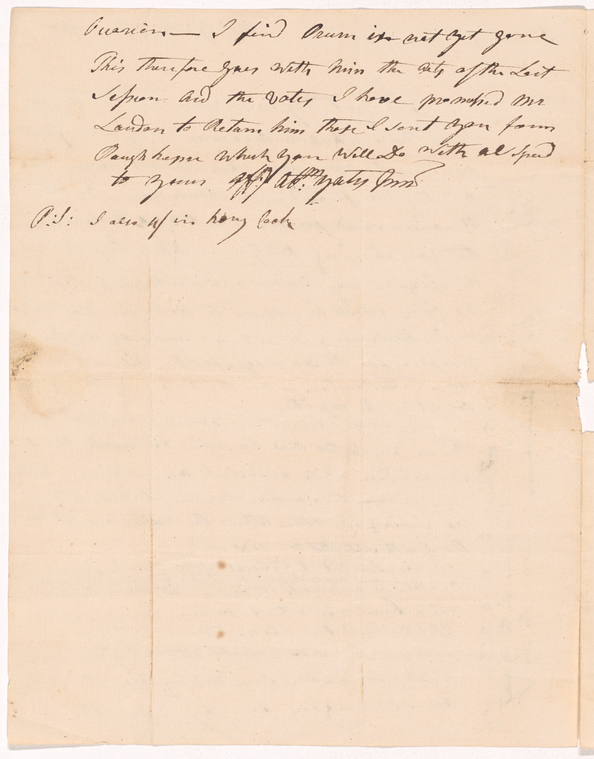 Occasion — I find Drum is not yet gone
This therefore goes with him the acts of the Last
Session and the votes I have promised Mr
Laudon to Return him those I sent you from
Poughkepsie which you Will Do with al speed
to yours Abm: Yates Junr
P:S: I also in